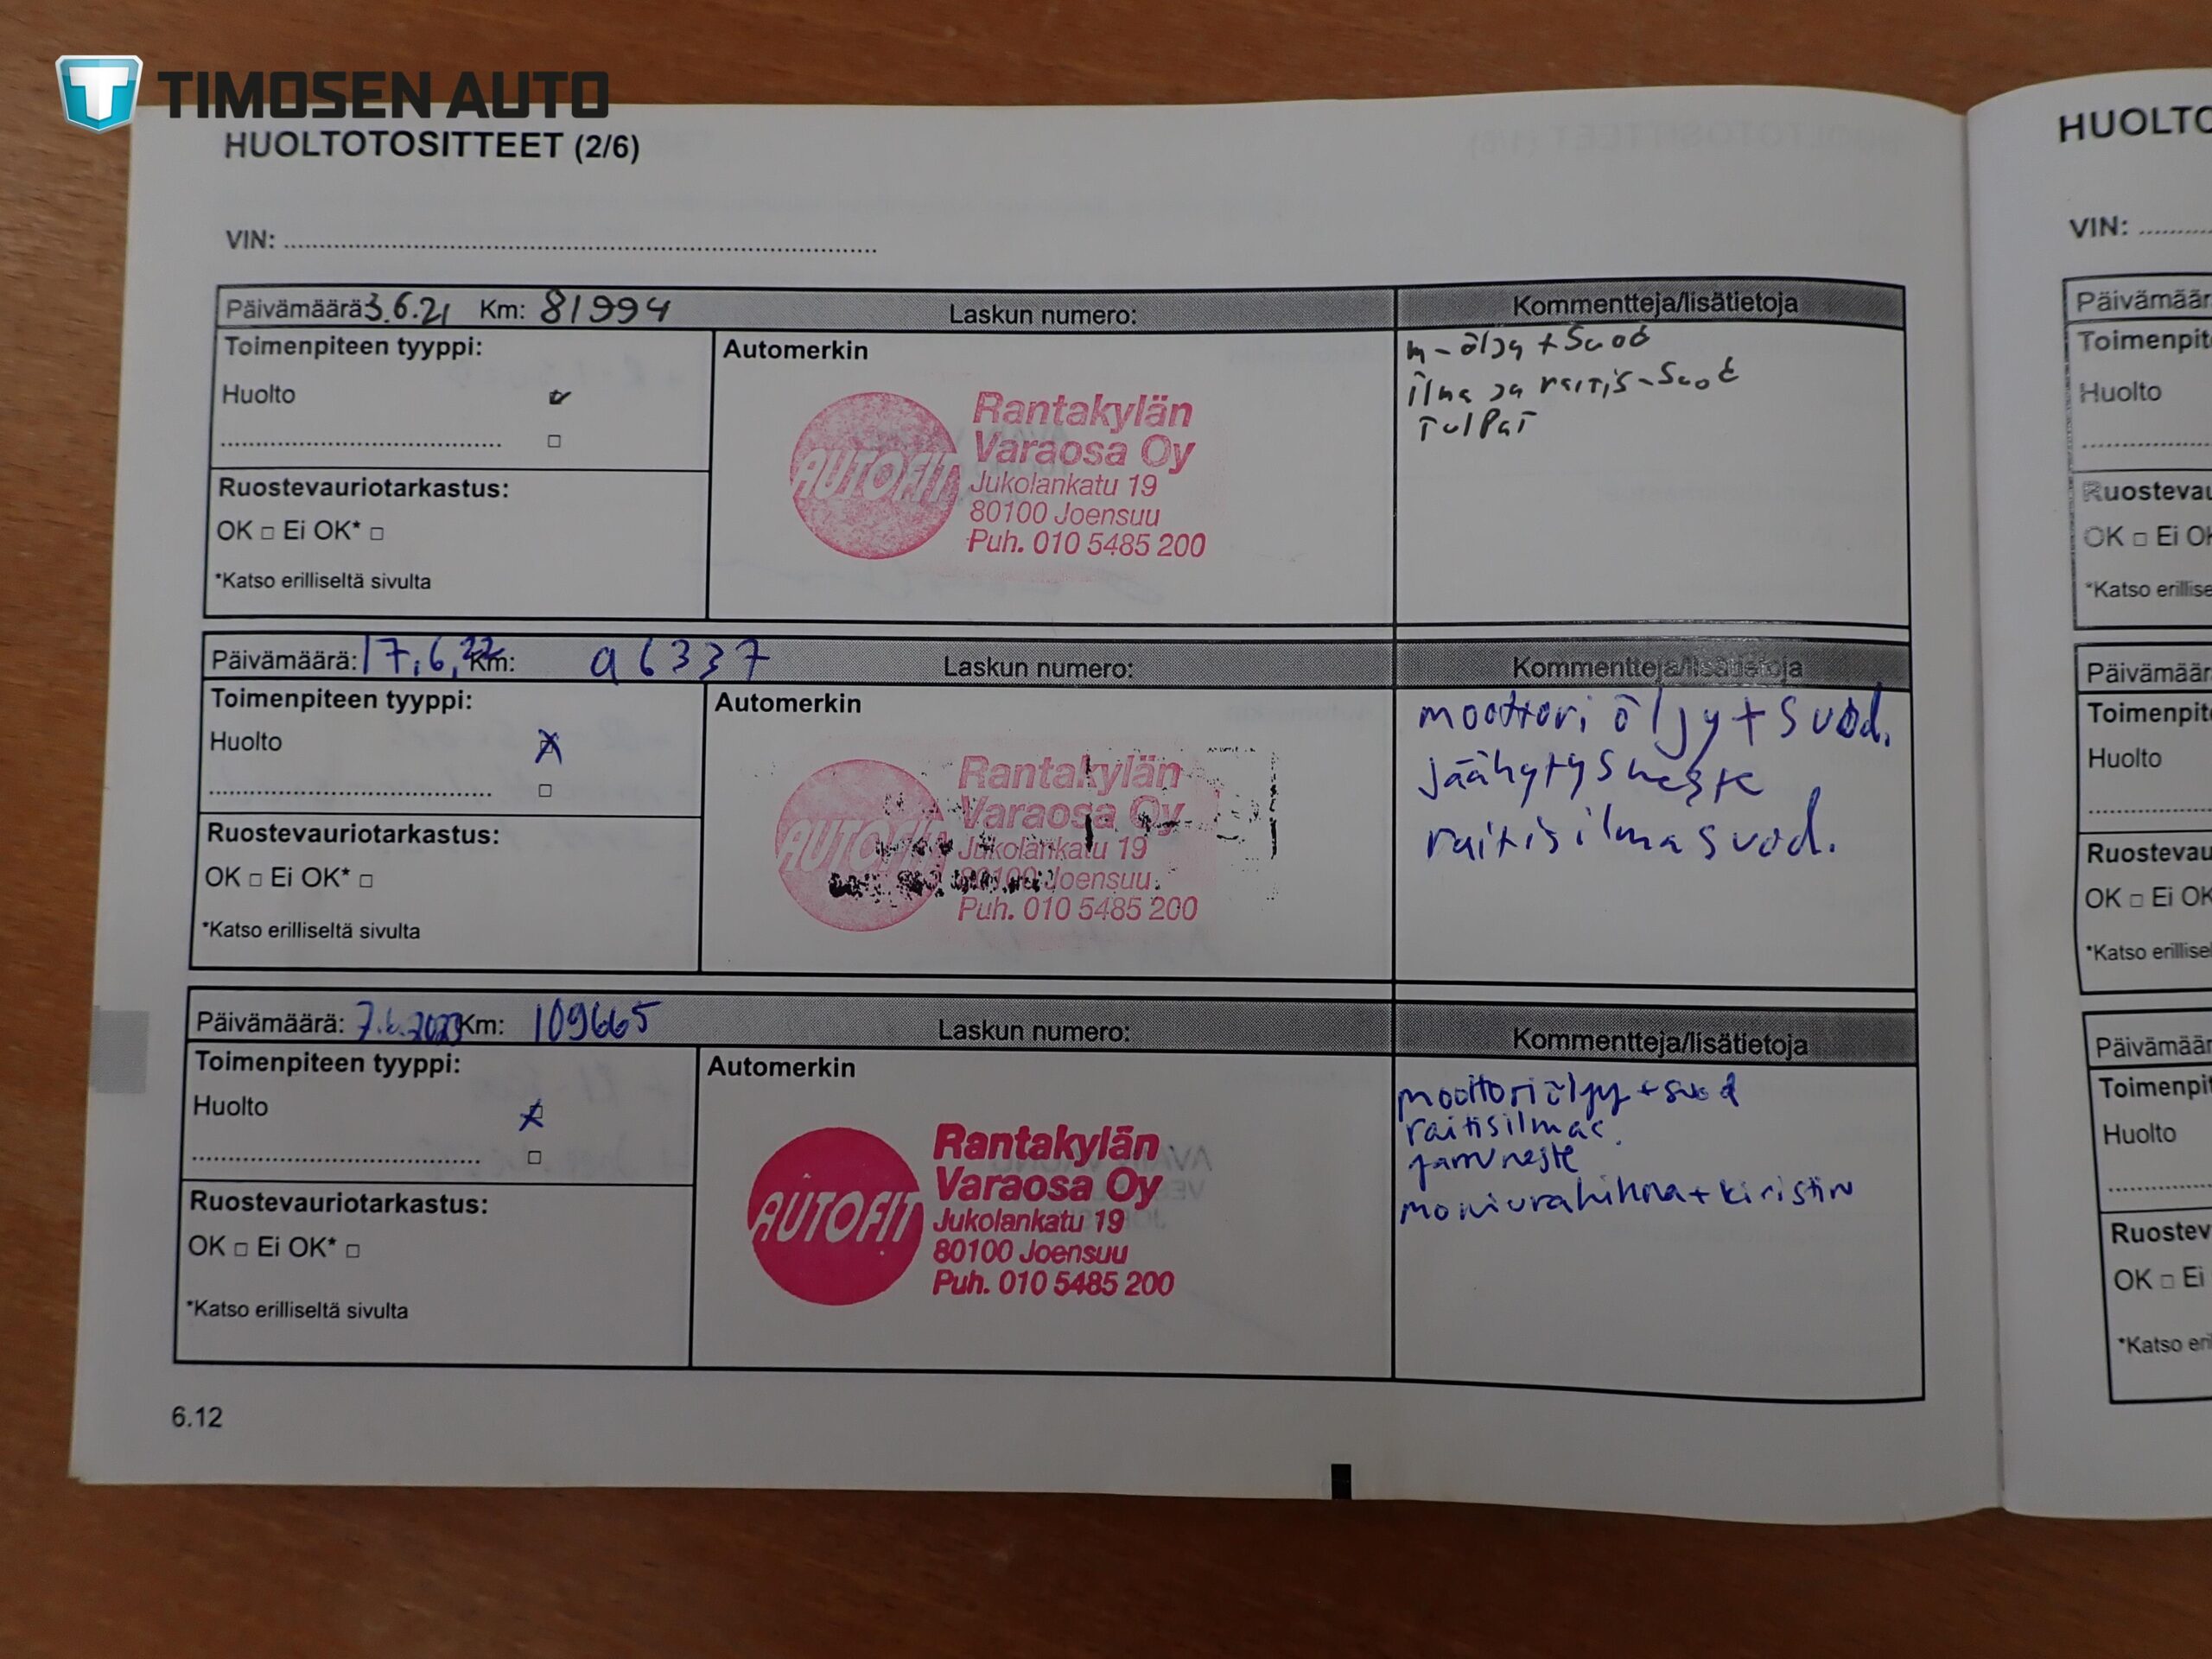 TIMOSEN AUTO
HUOLTOTOSITTEET (2/6)
VIN:
Päivämäärä 3.6.21 Km: 81994 Laskun numero: Kommentteja/lisätietoja
Toimenpiteen tyyppi:
Huolto
Ruostevauriotarkastus:
OK □ Ei OK* □
*Katso erilliseltä sivulta
Automerkin
AUTOFIT
Rantakylän
Varaosa Oy
Jukolankatu 19
80100 Joensuu
Puh. 010 5485 200
m-öljy + Suod
ilma ja raitis-Suod
Tulpat
Päivämäärä: 17,6,22 Km: 96337 Laskun numero: Kommentteja/lisätietoja
Toimenpiteen tyyppi:
Huolto
Ruostevauriotarkastus:
OK □ Ei OK* □
*Katso erilliseltä sivulta
Automerkin
AUTOFIT
Rantakylän
Varaosa Oy
Jukolankatu 19
80100 Joensuu
Puh. 010 5485 200
moottori öljy + suod.
jäähytysneste
raitisilmasuod.
Päivämäärä: 7.6.2023 Km: 109665 Laskun numero: Kommentteja/lisätietoja
Toimenpiteen tyyppi:
Huolto
Ruostevauriotarkastus:
OK □ Ei OK* □
*Katso erilliseltä sivulta
Automerkin
AUTOFIT
Rantakylän
Varaosa Oy
Jukolankatu 19
80100 Joensuu
Puh. 010 5485 200
moottoriöljy + suod
jarruneste
moniurahihna + kiristin
6.12
HUOLTO
VIN:
Päivämäär
Toimenpit
Huolto
Ruosteva
OK □ Ei OK
*Katso erillise
Päivämäär
Toimenpit
Huolto
Ruostevau
OK □ Ei OK
*Katso erillise
Päivämäär
Toimenpit
Huolto
Ruostev
OK □ Ei
*Katso eri